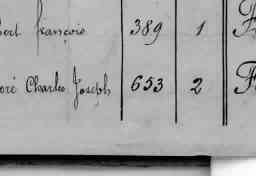 bert françois 389 1
oré Charles Joseph 653 2